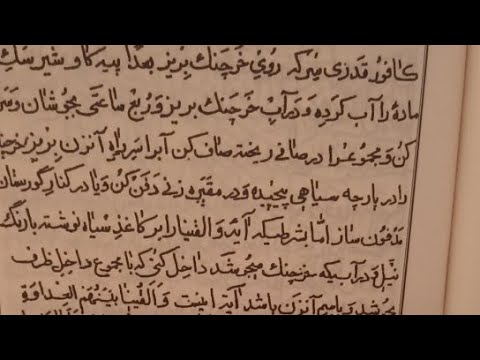 کافور قدری سرکه روی خرچنك بریز بعدا پیه کاو شیر سك
ماده را آب کرده و در آب خرچنك بریز و ربع ساعتی بجوشان و سر
کن و مجموع را در صافی ریخته صاف کن آبرا سر راه آنزن بریز خرچنك
را در پارچه سیاهی پیچیده و در مقبره زنی دفن کن و یا در کنار گورستان
مدفون ساز اما بشرطیکه آیه و القینا را بر کاغذ سیاه نوشته با رنك
نیل و در آب یکه خرچنك میجوشد داخل کنی که با مجموع داخل ظرف
بجوشد و باسم آنزن باشد آیه اینست و القینا بینهم العداوة